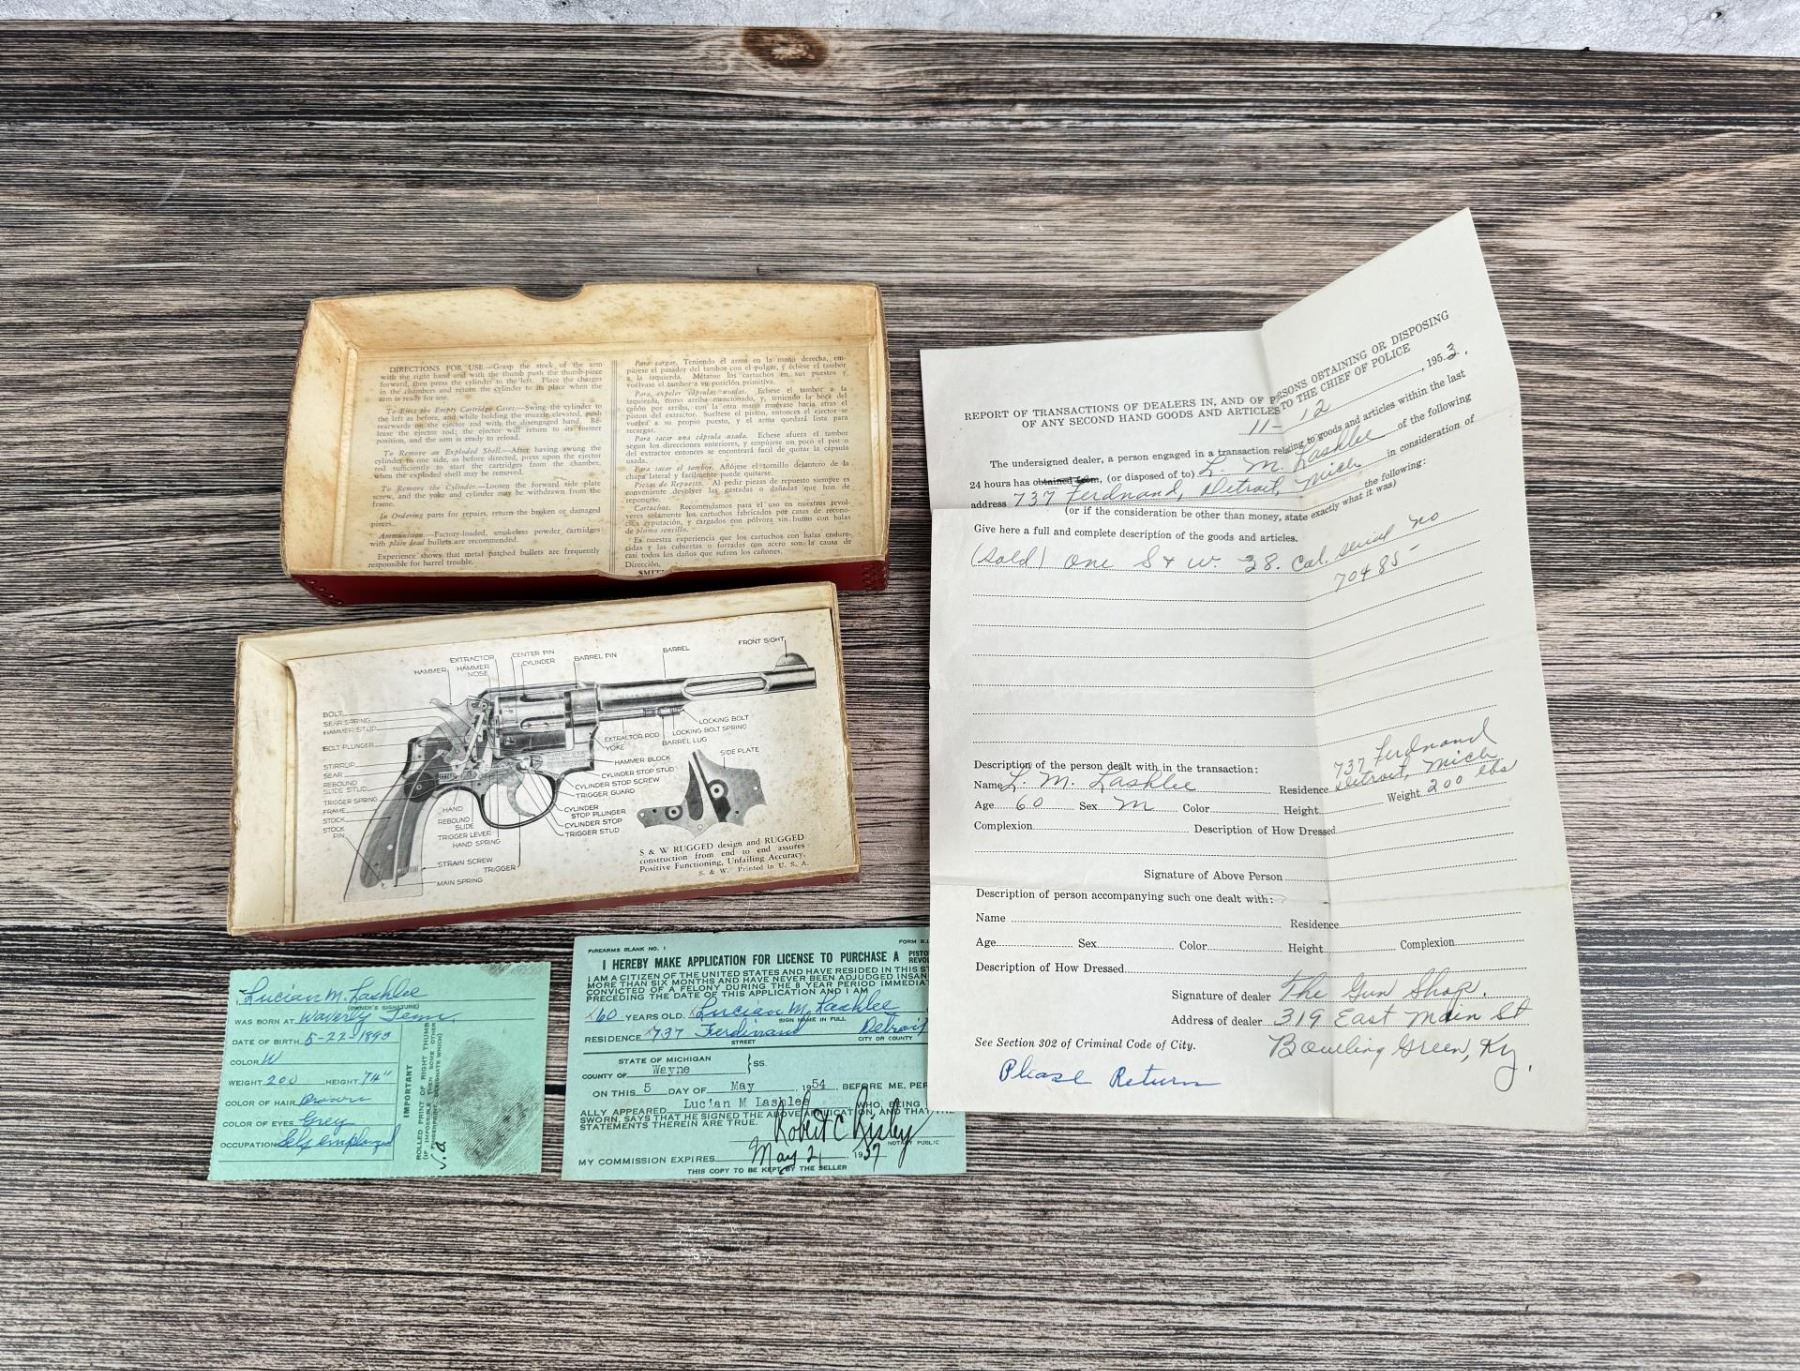 DIRECTIONS FOR USE.—Grasp the stock of the arm
with the right hand and with the thumb push the thumb-piece
forward, then press the cylinder to the left. Place the charges
in the chambers and return the cylinder to its place when the
arm is ready for use.
To Eject the Empty Cartridge Cases.—Swing the cylinder to
the left as before, and while holding the muzzle elevated, push
rearwards on the ejector rod with the disengaged hand. Re-
lease the ejector rod; the ejector will return to its former
position, and the arm is ready to reload.
To Remove an Exploded Shell.—After having swung the
cylinder to one side, as before directed, press upon the ejector
rod sufficiently to start the cartridges from the chamber,
when the exploded shell may be removed.
To Remove the Cylinder.—Loosen the forward side plate
screw, and the yoke and cylinder may be withdrawn from the
frame.
In Ordering parts for repairs, return the broken or damaged
pieces.
Ammunition.—Factory-loaded, smokeless powder cartridges
with plain lead bullets are recommended.
Experience shows that metal patched bullets are frequently
responsible for barrel trouble.
Para cargar. Teniendo él arma en la mano derecha, em-
pújese el pasador del tambor con el pulgar, y échese el tambor
a la izquierda. Métanse los cartuchos en sus puestos y
vuélvase el tambor a su posición primitiva.
Para expeler cápsulas usadas. Échese el tambor a la
izquierda, como arriba mencionado, y, teniendo la boca del
cañón por arriba, con la otra mano muévase hacia atrás el
pistón del extractor. Suéltese el pistón, entonces el ejector se
volverá a su propio puesto, y el arma quedará lista para
recargar.
Para sacar una cápsula usada. Échese afuera el tambor
según las direcciones anteriores, y empújese un poco el pistón
del extractor entonces se encontrará fácil de quitar la cápsula
usada.
Para sacar el tambor. Aflójese el tornillo delantero de la
chapa lateral y fácilmente puede quitarse.
Piezas de Repuesto. Al pedir piezas de repuesto siempre es
conveniente devolver las gastadas o dañadas que han de
reponerse.
Cartuchos. Recomendamos para el uso en nuestros revól-
veres solamente los cartuchos fabricados por casas de recono-
cida reputación, y cargados con pólvora sin humo con balas
de plomo sencillo.
Es nuestra experiencia que los cartuchos con balas endure-
cidas y las cubiertas o forradas con acero son la causa de
casi todos los daños que sufren los cañones.
Dirección,
FRONT SIGHT
BARREL
BARREL PIN
CENTER PIN
CYLINDER
EXTRACTOR
HAMMER NOSE
HAMMER
BOLT
SEAR SPRING
HAMMER STUD
BOLT PLUNGER
STIRRUP
SEAR
REBOUND SLIDE STUD
TRIGGER SPRING
FRAME
STOCK
STOCK PIN
LOCKING BOLT
LOCKING BOLT SPRING
BARREL LUG
EXTRACTOR ROD
YOKE
SIDE PLATE
HAMMER BLOCK
CYLINDER STOP STUD
CYLINDER STOP SCREW
TRIGGER GUARD
CYLINDER STOP PLUNGER
CYLINDER STOP
TRIGGER STUD
HAND
REBOUND SLIDE
TRIGGER LEVER
HAND SPRING
STRAIN SCREW
TRIGGER
MAIN SPRING
S & W RUGGED design and RUGGED
construction from end to end assures
Positive Functioning, Unfailing Accuracy.
S. & W. Printed in U. S. A.
Lucian M. Lashlee
(OWNER'S SIGNATURE)
WAS BORN AT Waverly Tenn.
DATE OF BIRTH 5-22-1893
COLOR W
WEIGHT 200 HEIGHT 74"
COLOR OF HAIR Brown
COLOR OF EYES Grey
OCCUPATION Self employed
IMPORTANT
ROLLED PRINT OF RIGHT THUMB
FIREARMS BLANK NO. 1
FORM
I HEREBY MAKE APPLICATION FOR LICENSE TO PURCHASE A
I AM A CITIZEN OF THE UNITED STATES AND HAVE RESIDED IN THIS
MORE THAN SIX MONTHS AND HAVE NEVER BEEN ADJUDGED INSAN
CONVICTED OF A FELONY DURING THE 8 YEAR PERIOD IMMEDIAT
PRECEDING THE DATE OF THIS APPLICATION AND I AM
x60 YEARS OLD. x Lucian M. Lashlee
SIGN NAME IN FULL
RESIDENCE x737 Ferdinand Detroit
STREET CITY OR COUNTY
STATE OF MICHIGAN
COUNTY OF Wayne } SS.
ON THIS 5 DAY OF May 1954 BEFORE ME, PER
ALLY APPEARED Lucian M Lashlee WHO, BEING
SWORN, SAYS THAT HE SIGNED THE ABOVE APPLICATION, AND THAT THE
STATEMENTS THEREIN ARE TRUE.
Robert C Risley
NOTARY PUBLIC
MY COMMISSION EXPIRES May 21 1957
THIS COPY TO BE KEPT BY THE SELLER
REPORT OF TRANSACTIONS OF DEALERS IN, AND OF PERSONS OBTAINING OR DISPOSING
OF ANY SECOND HAND GOODS AND ARTICLES TO THE CHIEF OF POLICE
11-12, 1953.
The undersigned dealer, a person engaged in a transaction relating to goods and articles within the last
24 hours has obtained from, (or disposed of to) L. M. Lashlee of the following
address 737 Ferdnand, Detroit, Mich in consideration of
the following:
(or if the consideration be other than money, state exactly what it was)
Give here a full and complete description of the goods and articles.
(sold) One S & W. 38. Cal. serial no
70485-
Description of the person dealt with in the transaction:
737 Ferdnand
Name L. M. Lashlee Residence Detroit, Mich
Age 60 Sex M Color Height Weight 200 lbs
Complexion Description of How Dressed
Signature of Above Person
Description of person accompanying such one dealt with:
Name Residence
Age Sex Color Height Complexion
Description of How Dressed
Signature of dealer The Gun Shop.
Address of dealer 319 East Main St
See Section 302 of Criminal Code of City. Bowling Green, Ky.
Please Return